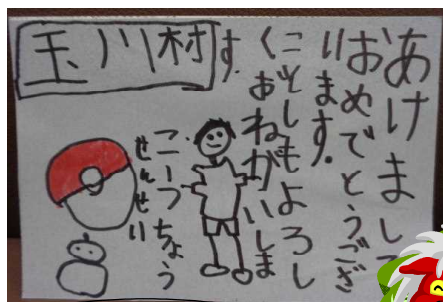 あけまして
おめでとうござ
います。
ことしもよろし
くおねがいしま
す。
玉川村
こうちょう
せんせい